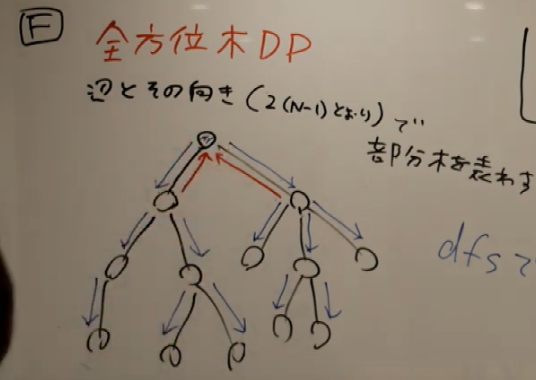 F 全方位木DP
辺とその向き(2(N-1)とおり)で
部分木を表わす
dfsで